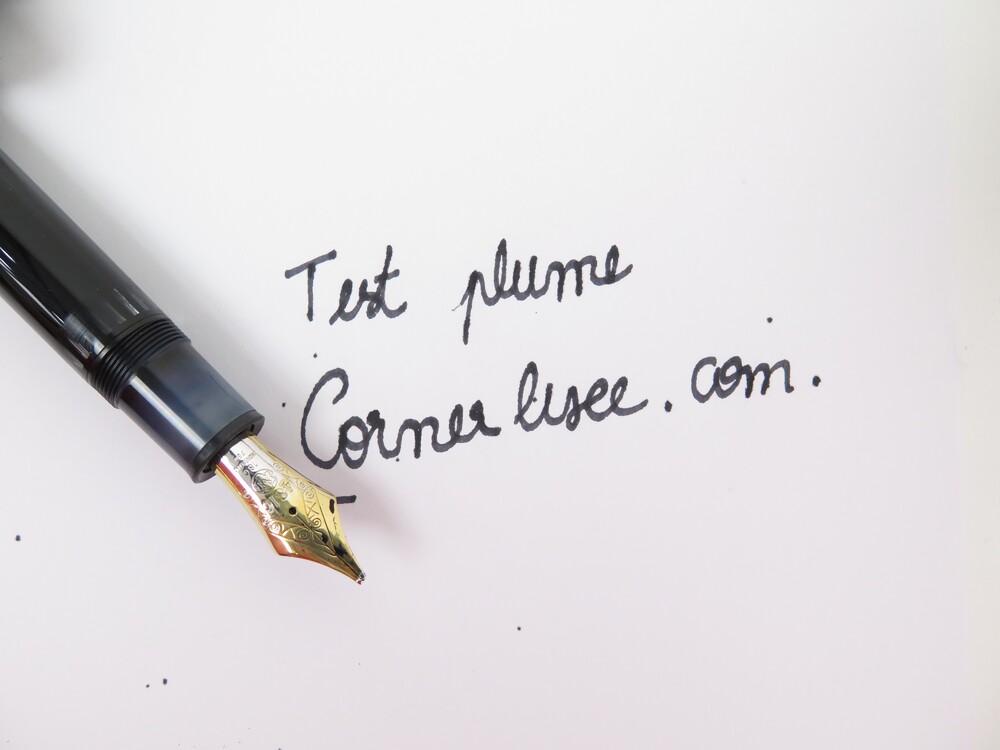 Test plume
Cornerlusee.com.